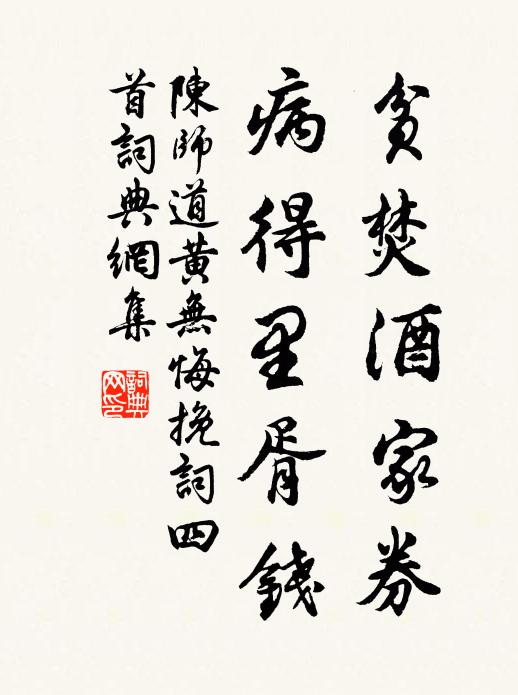 貧焚酒家券
病得里胥錢
陳師道黃無悔挽詞四
首詞典網集
詞典
网印